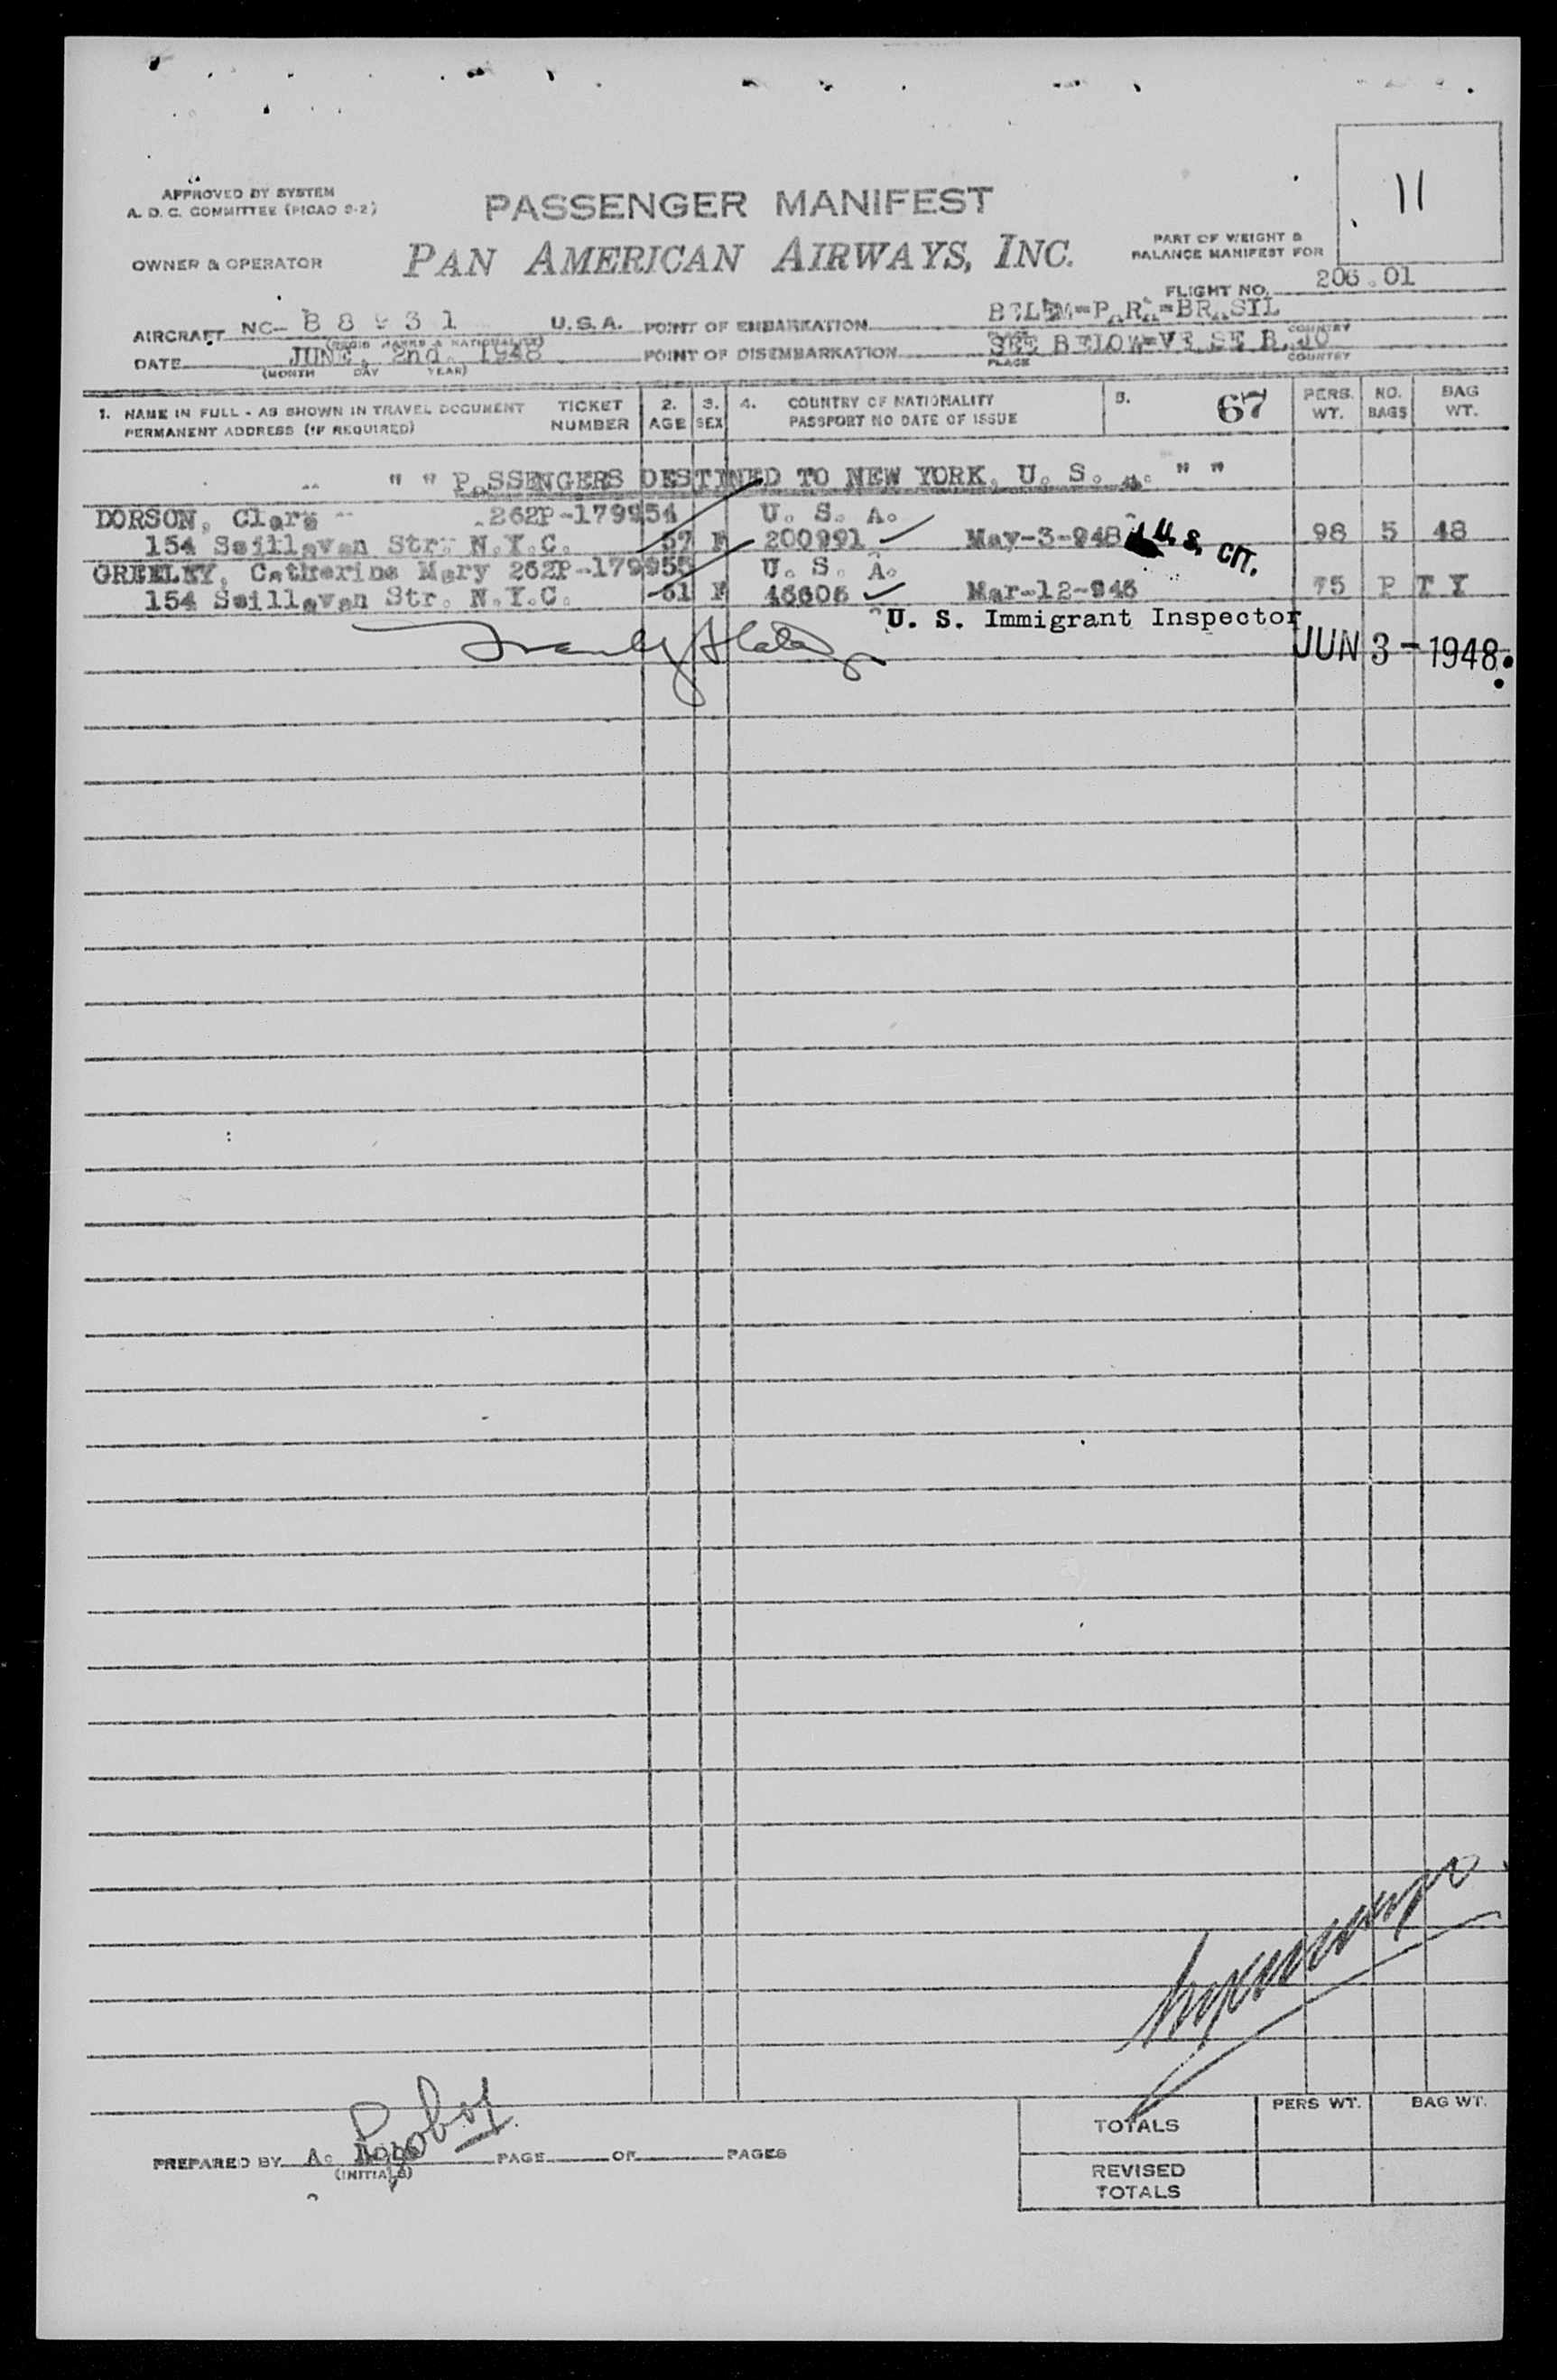 11
APPROVED BY SYSTEM
A. D. C. COMMITTEE (PICAO 9-2)
PASSENGER MANIFEST
OWNER & OPERATOR
PAN AMERICAN AIRWAYS, INC.
PART OF WEIGHT &
BALANCE MANIFEST FOR
FLIGHT NO. 206.01
AIRCRAFT NC- 88931 U.S.A. POINT OF EMBARKATION BELEM=PARA=BRASIL
(REGIS MARKS & NATIONALITY) PLACE COUNTRY
DATE JUNE, 2nd. 1948 POINT OF DISEMBARKATION SEE BELOW=
(MONTH DAY YEAR) PLACE COUNTRY
1. NAME IN FULL - AS SHOWN IN TRAVEL DOCUMENT TICKET 2. 3. 4. COUNTRY OF NATIONALITY 5. 67 PERS. NO. BAG
PERMANENT ADDRESS (IF REQUIRED) NUMBER AGE SEX PASSPORT NO DATE OF ISSUE WT. BAGS WT.
" " PASSENGERS DESTINED TO NEW YORK, U. S. A. " "
DORSON, Clara 262P-179954 U. S. A.
154 Seillavan Str. N.Y.C. 57 F 200991 May-3-948 U.S. CIT. 98 5 48
GREELEY, Catherine Mary 262P-179955 U. S. A.
154 Seillavan Str. N.Y.C. 61 F 46606 Mar-12-946 75 P T Y
U. S. Immigrant Inspector
JUN 3 - 1948
PREPARED BY A. Lobo PAGE OF PAGES
(INITIALS)
PERS WT. BAG WT.
TOTALS
REVISED
TOTALS